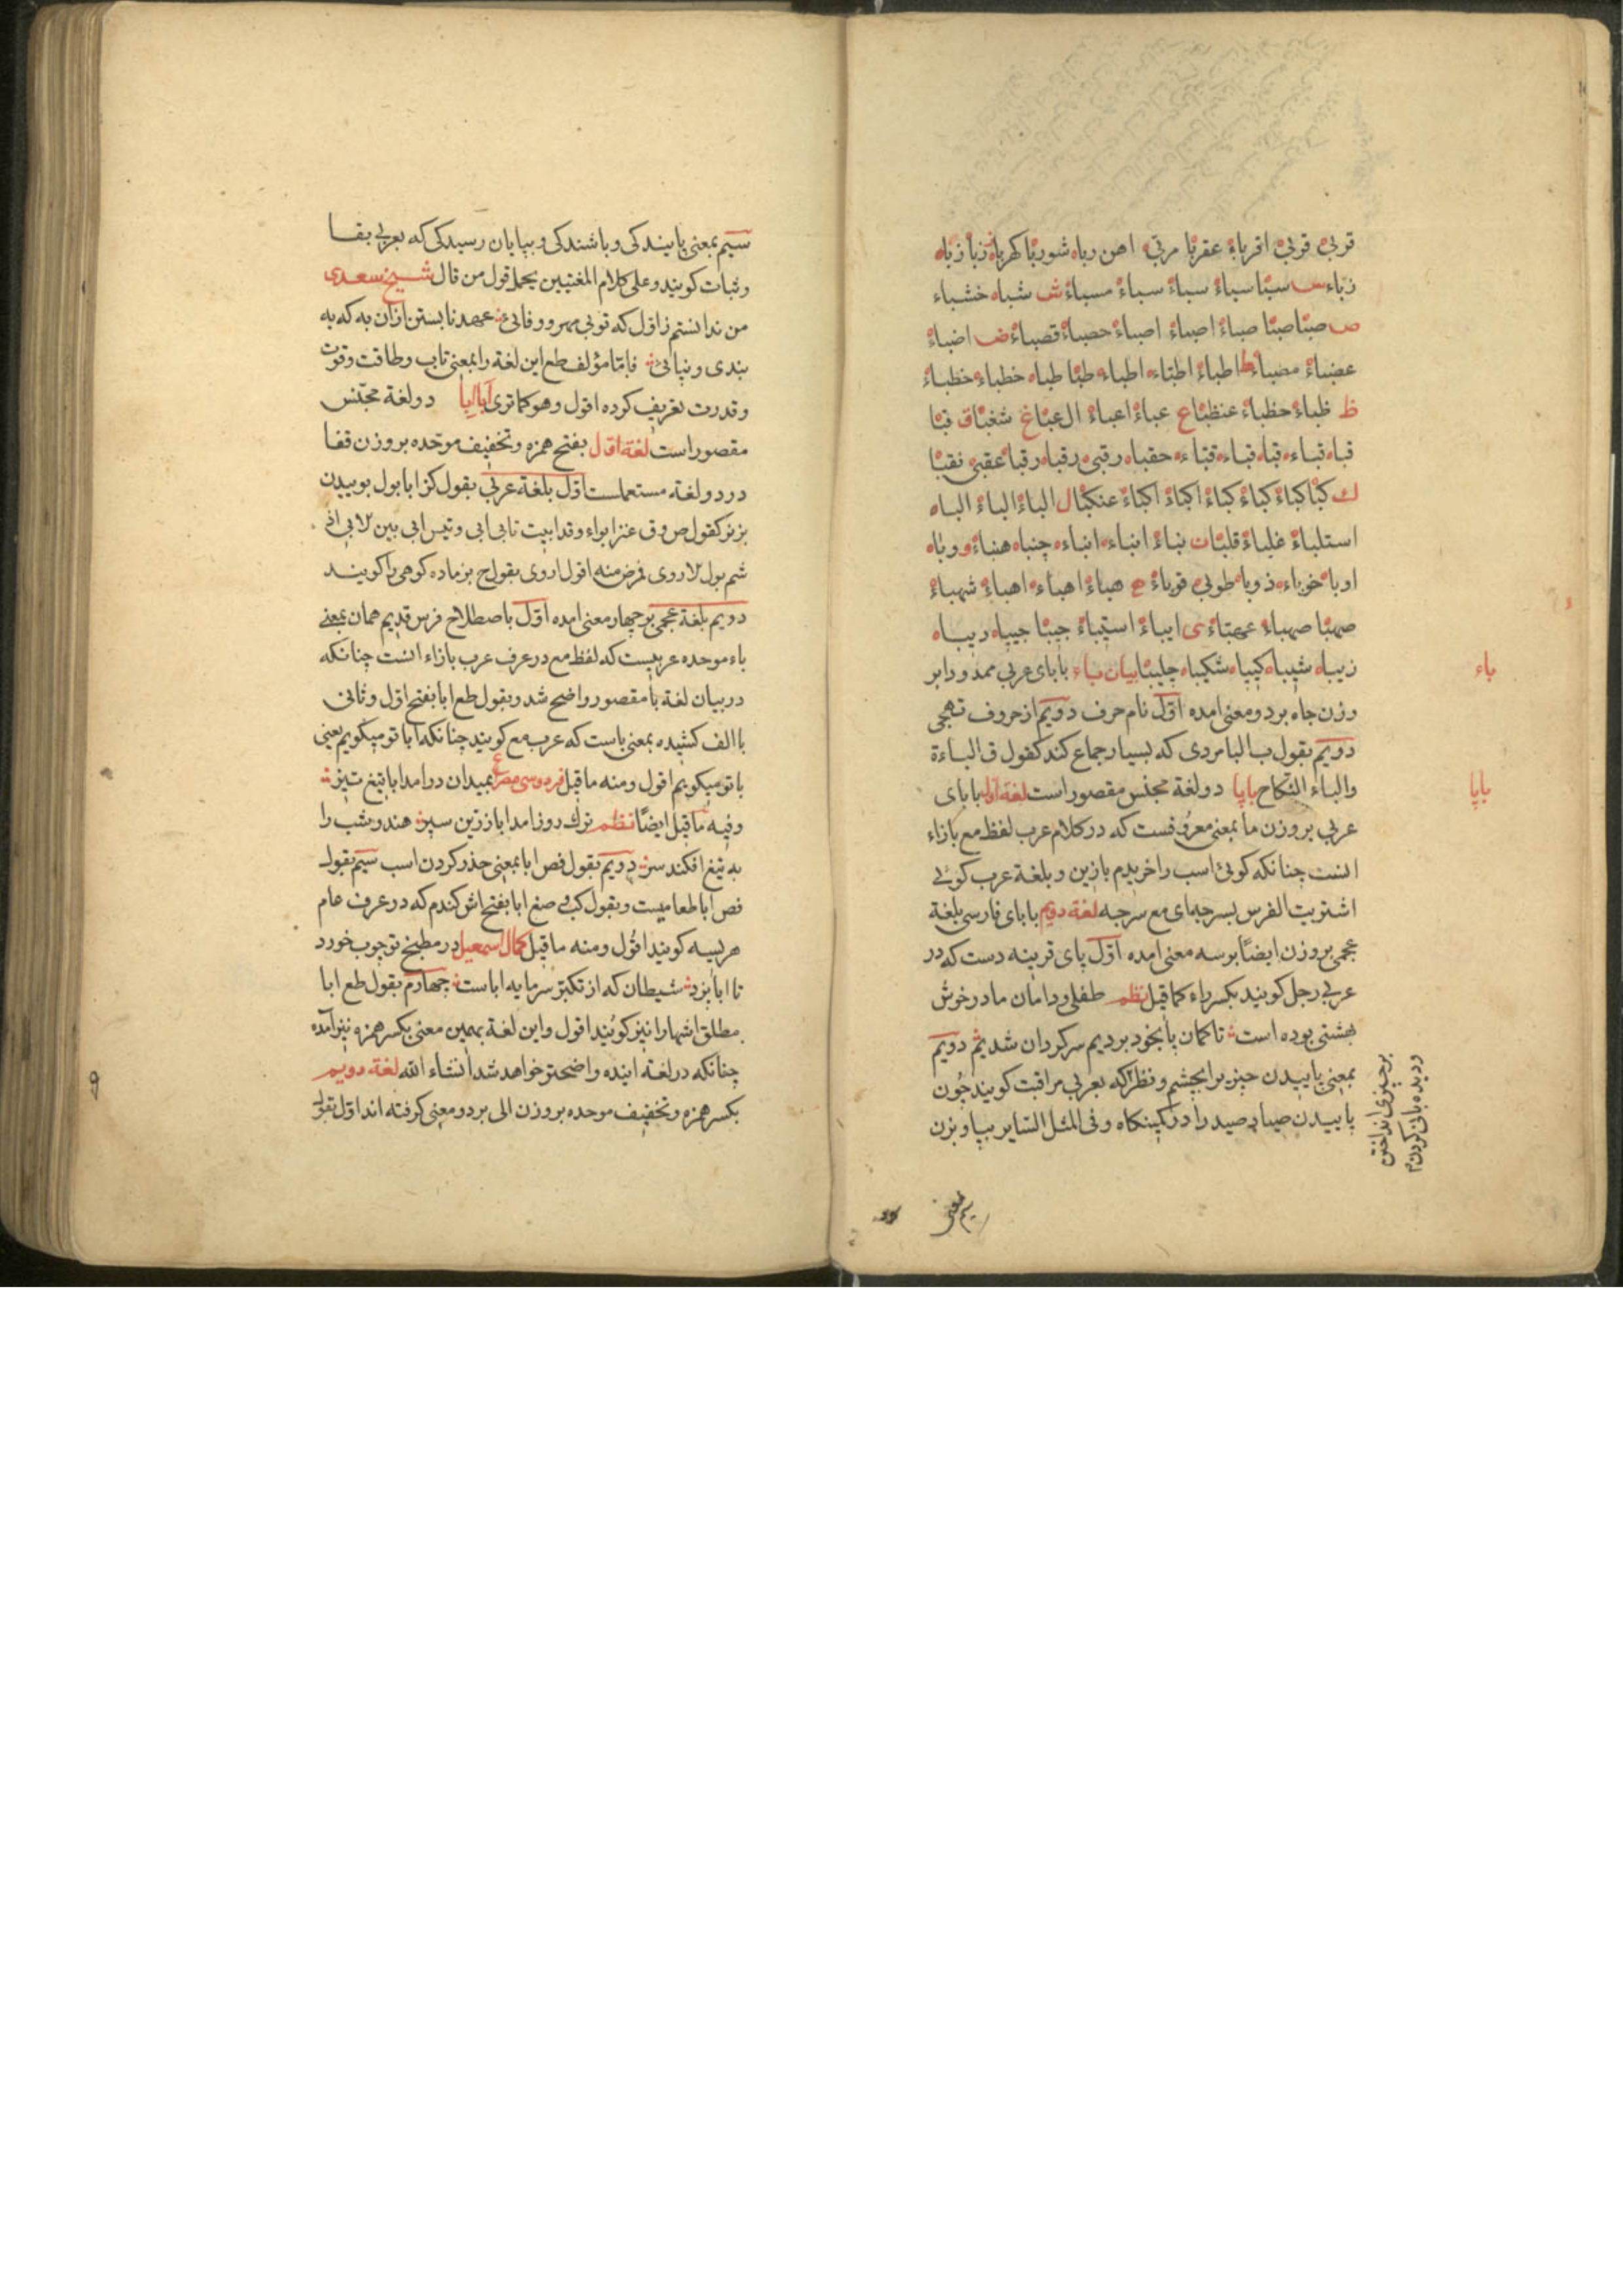 قربیٰ قربیٰ اقرباء عقربا مربی اهن رباه شوربا کهرباه زبا زباه
زباء س سبا سباء سباء سباء مسباء ش شباه خشباء
ص صبا صبا صباء اصباء اصباء حصباء قصباء ض اضباء
عضباء مضباء ط اطباء اطباء اطباء طبا طباه خطباء خطباء
ظ ظباء حظباء عنظبا ع عباء اعباء ال عبا غ شغبا ق قبا
قباه قباء قباه قباء قباء حقباه رقبی رقباه رقبا عقبی نقبا
ك کبا کباء کباء کباء اکباء اکباء عنکبا ل الباء الباء الباه
استلباء غلباء قلبا ن نباء انباء انباء چنباه هنباء و وباه
اوبا خوباء ذوبا طوبی قوباء ه هباء اهباء اهباء شهباء
صهبا صهباء عهباء ی ایباء استیباء جیبا جیباه دیباه
زیباه شیباه کیپاه شکیباه چلیبا بیان باء بابای عربی ممدود ابر
وزن جاه بر دو معنی امده اول نام حرف دویم از حروف تهجی
دویم بقول ب البا مردی که بسیار جماع کند کقول ق الباءة
والباء النکاح باپا دو لغة مجنس مقصور است لغة اول بابای
عربی بر وزن ما بمعنی معروفست که در کلام عرب لفظ مع بازاء
انست چنانکه کوئی اسب را خریدم بازین و بلغة عرب کوئی
اشتریت الفرس بسرجه ای مع سرجه لغة دویم بابای فارسی بلغة
عجمی بر وزن ایضا بر سه معنی امده اول پای قرینه دست که در
عربی رجل کویند بکسر راء کما قیل نظم طفلی و دامان مادر خوش
بهشتی بوده است تا کمان پا بخود بردیم سرکردان شدیم دویم
بمعنی پاییدن چیز برا بچشم و نظر که بعربی مراقبت کویند چون
پاییدن صیاد صید را در کمینکاه و فی المثل السایر بپا و بزن
باء
باپا
بر چیزی انداختن
و دیده بانی کردن
سیم بمعنی
سیم بمعنی پایندکی و باشندکی و بپایان رسیدکی که بعربی بقا
و ثبات کویند و علی کلام المغنیین یحمل قول من قال شیخ سعدی
من ندانستم ز اول که تو بی مهر و وفائی عهد نابستن ازان به که به
بندی و نپائی فاما مؤلف طع این لغة را بمعنی تاب و طاقت و قوت
و قدرت تعریف کرده اقول و هو کما تری ابا ابا دو لغة مجنس
مقصور است لغة اول بفتح همزه و تخفیف موحده بر وزن قفا
در دو لغة مستعملست اول بلغة عربی بقول کنز ابا بول بوییدن
بز نر کقول ص و ق عنز ابواء و قد ابیت تابی ابی و تیس ابی بین الابی اذ
شم بول الاروی فمرض منه اقول اروی بقول ح بز ماده کوهی را کویند
دویم بلغة عجمی بر چهار معنی امده اول باصطلاح فرس قدیم همان بمعنی
باء موحده عربیست که لفظ مع در عرف عرب بازاء انست چنانکه
در بیان لغة با مقصور واضح شد و بقول طع ابا بفتح اول و ثانی
با الف کشیده بمعنی باست که عرب مع کویند چنانکه ابا تو میکویم یعنی
با تو میکویم اقول و منه ما قیل فردوسی مصرع بمیدان درامد ابا تیغ تیز
و فیه ما قیل ایضا نظم ترك روز امد ابا زرین سپر هندو شب را
به تیغ افکند سر دویم بقول فص ابا بمعنی حذر کردن اسب سیم بقول
فص ابا طعامیست و بقول کب و صغ ابا بفتح اش کندم که در عرف عام
هریسه کویند اقول و منه ما قیل کمال اسمعیل در مطبخ تو چوب خورد
تا ابا بزد شیطان که از تکبر سرمایه اباست چهارم بقول طع ابا
مطلق اشها را نیز کویند اقول و این لغة بهمین معنی بکسر همزه نیز آمده
چنانکه در لغة اینده واضحتر خواهد شد انشاء الله لغة دویم
بکسر همزه و تخفیف موحده بر وزن الی بر دو معنی کرفته اند اول بقول